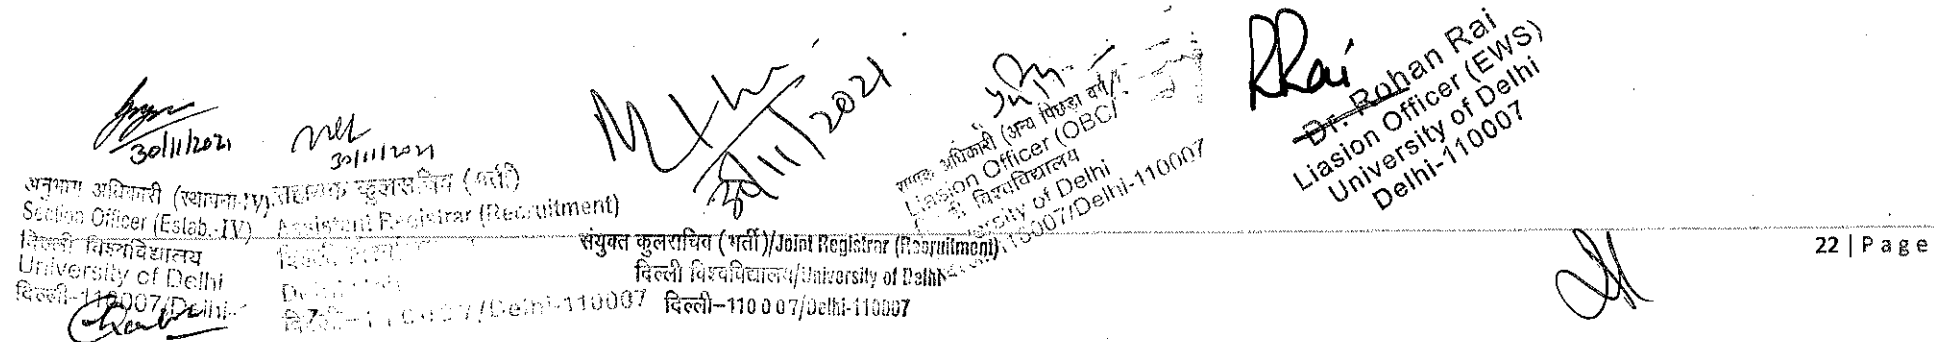 30/11/2021
अनुभाग अधिकारी (स्थापना-IV)
Section Officer (Estab.-IV)
दिल्ली विश्वविद्यालय
University of Delhi
दिल्ली-110007/Delhi-
30/11/2021
सहायक कुलसचिव (भर्ती)
Assistant Registrar (Recruitment)
/Delhi-110007
30/11/2021
संयुक्त कुलसचिव (भर्ती)/Joint Registrar (Recruitment)
दिल्ली विश्वविद्यालय/University of Delhi
दिल्ली-110007/Delhi-110007
अधिकारी (अन्य पिछड़ा वर्ग)
Liasion Officer (OBC)
विश्वविद्यालय
University of Delhi
110007/Delhi-110007
RRai
Dr. Rohan Rai
Liasion Officer (EWS)
University of Delhi
Delhi-110007
22 | Page